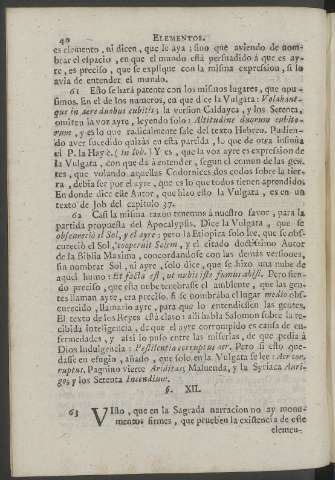 40 ELEMENTOS.
es elemento, ni dicen, que le aya; sino que aviendo de nom-
brar el espacio, en que el mundo està persuadido à que es ay-
re, es preciso, que se explique con la misma expression, si lo
avia de entender el mundo.
61 Esto se harà patente con los mismos lugares, que opu-
simos. En el de los numeros, en que dice la Vulgata: Volabant-
que in aere duobus cubitis; la version Caldayca, y los Setenta,
omiten la voz ayre, leyendo solo: Altitudine duorum cubito-
rum, y es lo que radicalmente sale del texto Hebreo. Pudien-
do aver sucedido quizàs en esta partida, lo que de otra insinùa
el P. la Haye. ( in Iob. ) Y es, que la voz ayre es expression de
la Vulgata, con que dà à entender, segun el comun de las gen-
tes, que volando aquellas Codornices dos codos sobre la tier-
ra, debia ser por el ayre, que es lo que todos tienen aprendido.
En donde dice este Autor, que hizo esto la Vulgata, es en un
texto de Job del capitulo 37.
62 Casi la misma razon tenemos à nuestro favor, para la
partida propuesta del Apocalypsis. Dice la Vulgata, que se
obscureciò el Sol, y el ayre; pero la Etiopica solo lee, que se obs-
cureciò el Sol, cooperuit Solem, y el citado doctissimo Autor
de la Biblia Maxima, concordandose con las demàs versiones,
sin nombrar Sol, ni ayre, solo dice, que se hizo una nube de
aquel humo: Et facta est, ut nubis iste fumus abissi. Pero sien-
do preciso, que esta nube tenebrasse el ambiente, que las gen-
tes llaman ayre, era preciso, si se nombraba el lugar medio obs-
curecido, llamarlo ayre, para que lo entendiessen las gentes.
El texto de los Reyes està claro: allì habla Salomon sobre la re-
cibida inteligencia, de que el ayre corrompido es causa de en-
fermedades, y assi lo puso entre las miserias, de que pedia à
Dios indulgencia: Pestilentia corruptus aer. Pero si esto que-
dasse en efugio, añado, que solo en la Vulgata se lee: Aer cor-
ruptus, Pagnino vierte Ariditas; Maluenda, y la Syriaca Auri-
go; y los Setenta Incendium.
§. XII.
63 VIsto, que en la Sagrada narracion no ay monu-
mentos firmes, que prueben la existencia de este
elemen-